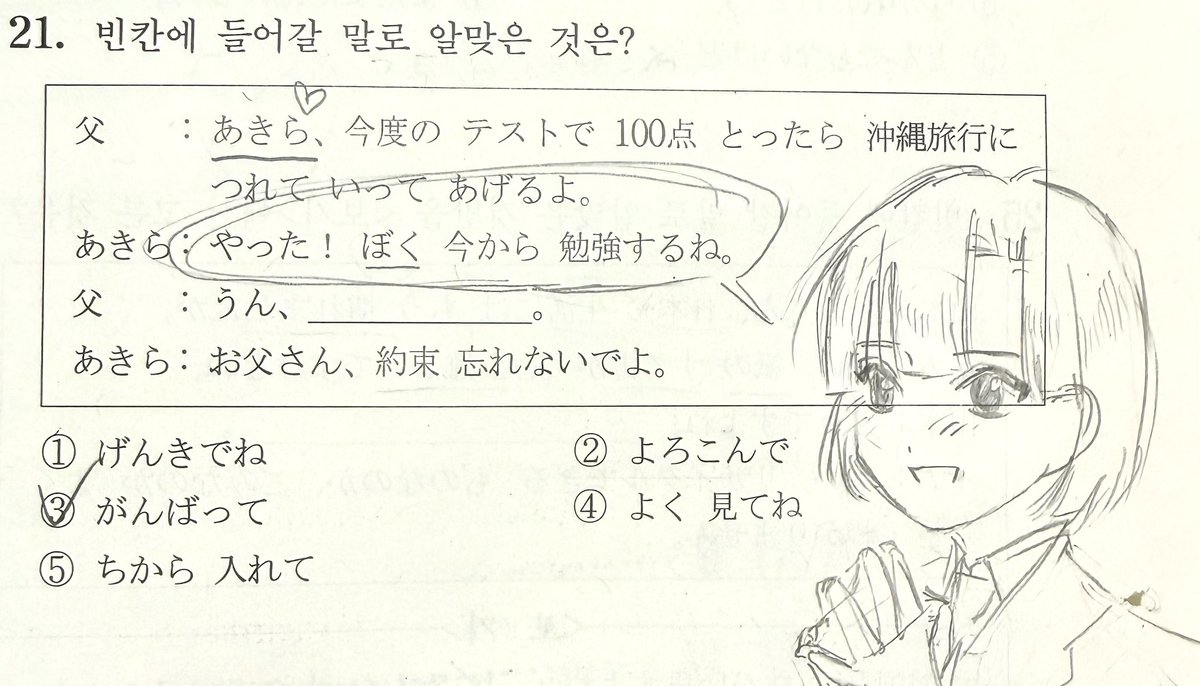 21. 빈칸에 들어갈 말로 알맞은 것은?
父 : あきら、今度の テストで 100点 とったら 沖縄旅行に
つれて いって あげるよ。
あきら: やった! ぼく 今から 勉強するね。
父 : うん、______________。
あきら: お父さん、約束 忘れないでよ。
① げんきでね ② よろこんで
③ がんばって ④ よく 見てね
⑤ ちから 入れて